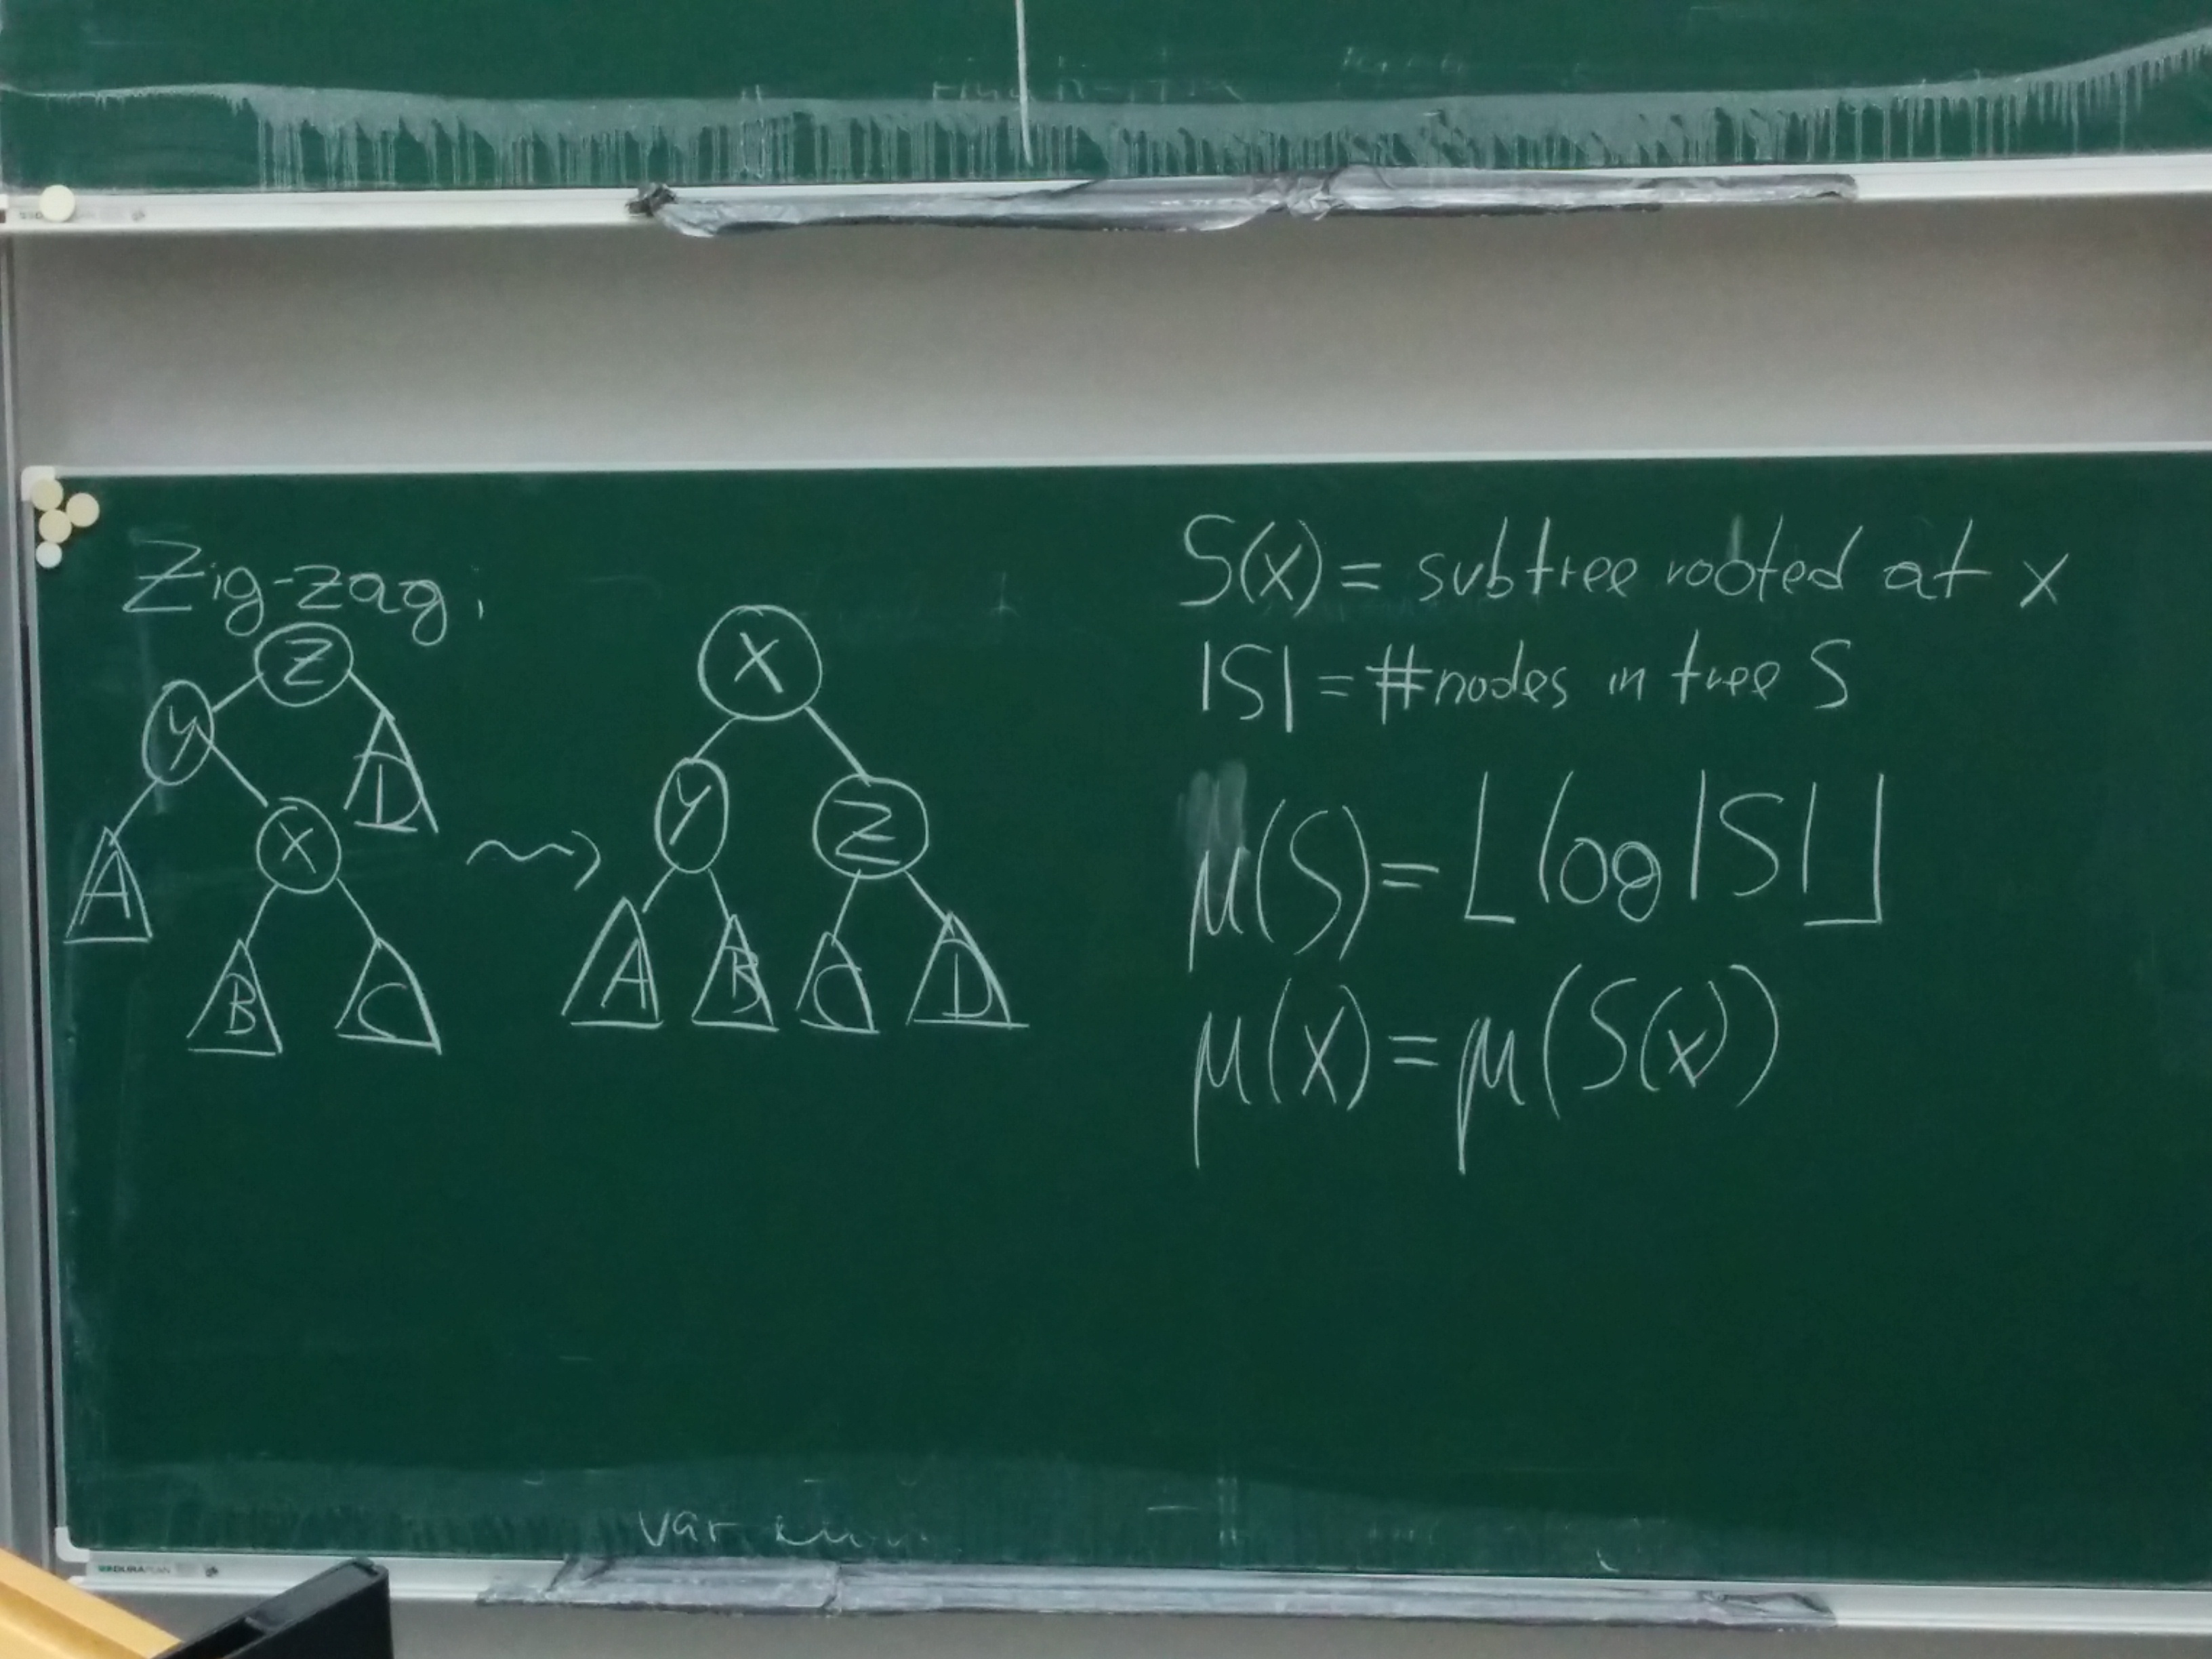 Zig-zag:
Z
Y
D
X
A
B
C
X
Y
Z
A
B
C
D
S(x) = subtree rooted at x
|S| = #nodes in tree S
μ(S) = ⌊log|S|⌋
μ(x) = μ(S(x))
var